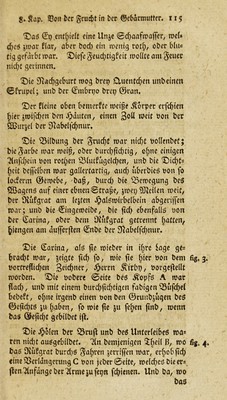 8. Kap. Von der Frucht in der Gebärmutter. 115
Das Ey enthielt eine Unze Schaafwasser, wel-
ches zwar klar, aber doch ein wenig roth, oder blu-
tig gefärbt war. Diese Feuchtigkeit wollte am Feuer
nicht gerinnen.
Die Nachgeburt wog drey Quentchen und einen
Skrupel; und der Embryo drey Gran.
Der kleine oben bemerkte weiße Körper erschien
hier zwischen den Häuten, einen Zoll weit von der
Wurzel der Nabelschnur.
Die Bildung der Frucht war nicht vollendet;
die Farbe war weiß, oder durchsichtig, ohne einigen
Anschein von rothen Blutkügelchen, und die Dicht-
heit desselben war gallertartig, auch überdies von so
lockerm Gewebe, daß, durch die Bewegung des
Wagens auf einer ebnen Straße, zwey Meilen weit,
der Rükgrat am lezten Halswirbelbein abgerissen
war; und die Eingeweide, die sich ebenfalls von
der Carina, oder dem Rükgrat getrennt hatten,
hiengen am äussersten Ende der Nabelschnur.
Die Carina, als sie wieder in ihre Lage ge-
bracht war, zeigte sich so, wie sie hier von dem fig. 3.
vortreflichen Zeichner, Herrn Kirby, vorgestellt
worden. Die vordere Seite des Kopfs A war
flach, und mit einem durchsichtigen fadigen Büschel
bedekt, ohne irgend einen von den Grundzügen des
Gesichts zu haben, so wie sie zu sehen sind, wenn
das Gesicht gebildet ist.
Die Hölen der Brust und des Unterleibes wa-
ren nicht ausgebildet. An demjenigen Theil B, wo fig. 4.
das Rükgrat durchs Fahren zerrissen war, erhob sich
eine Verlängerung C von jeder Seite, welches die er-
sten Anfänge der Arme zu seyn schienen. Und da, wo
das